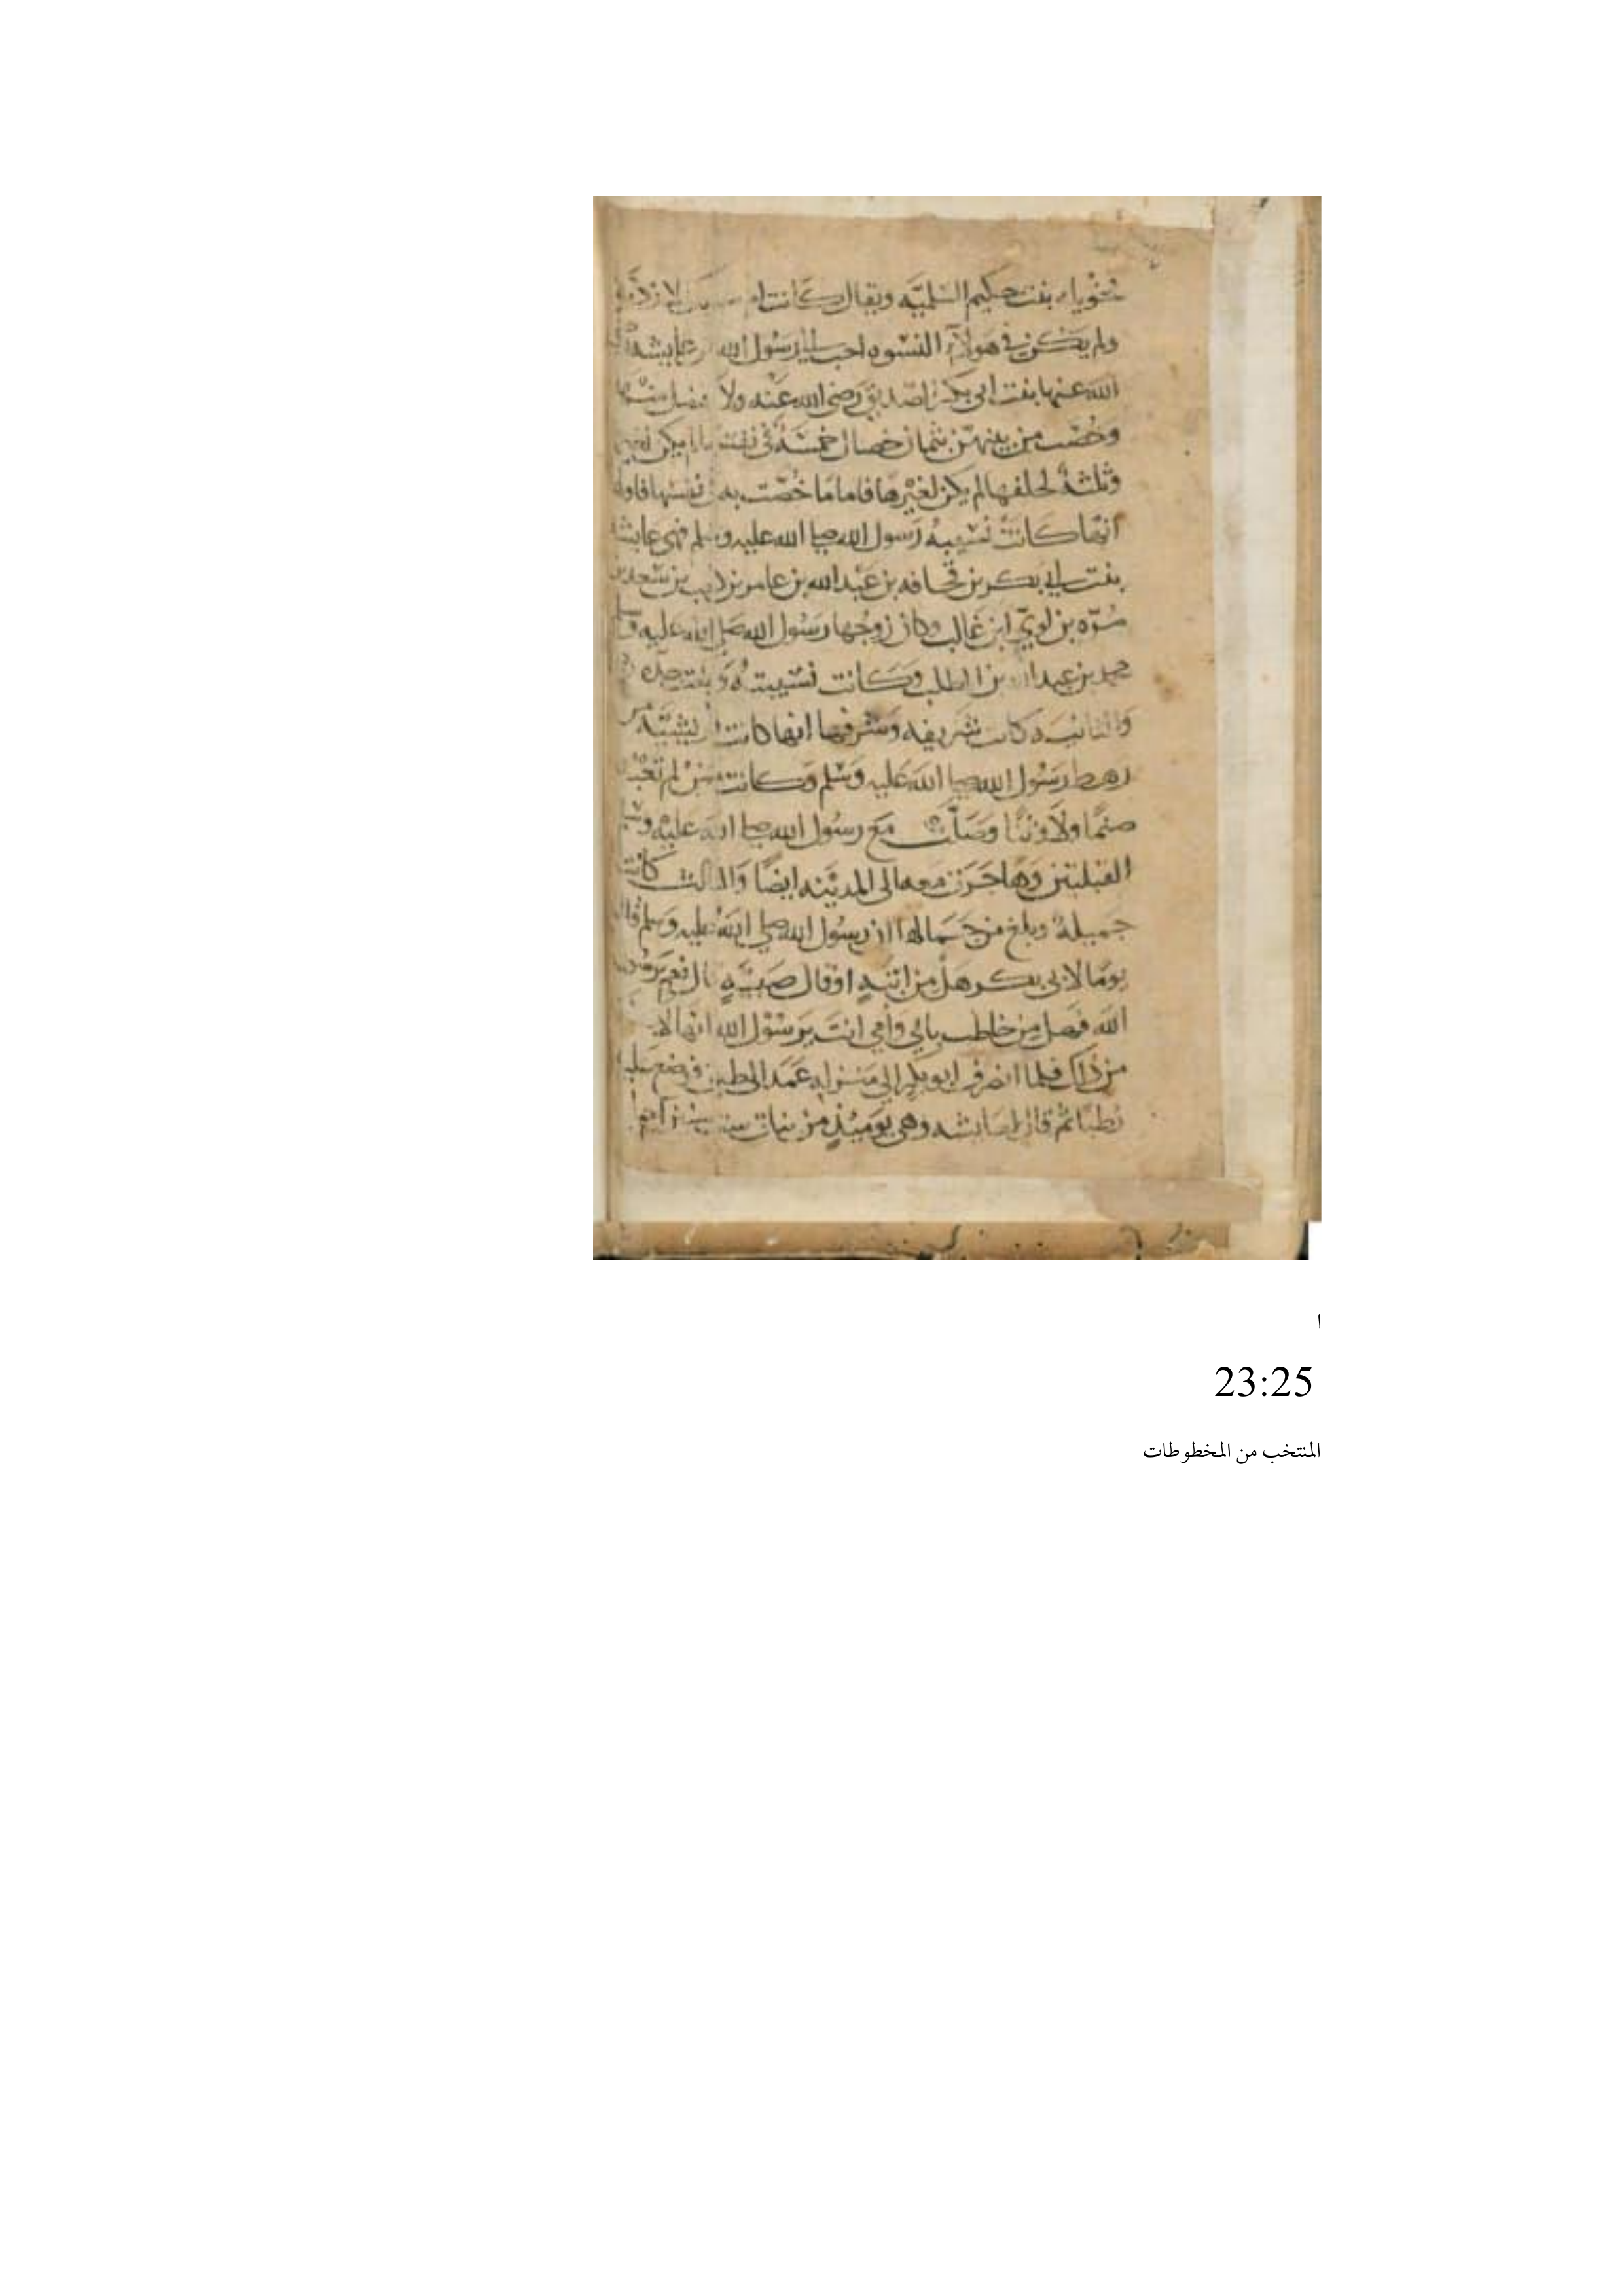 بنت حكيم السلميه ويقال كانت
ولم يكن في هولآء النسوه احب الي رسول الله عايشه
الله عنها بنت ابي بكر الصديق رضي الله عنه ولا افضل منها
وخصت من بينهن بثمان خصال خمسة في نفسها لم يكن لغيرها
وثلثة لحلفها لم يكن لغيرها فاما ما خصت به في نفسها فاول
انها كانت نسيبة رسول الله صلى الله عليه وسلم فهي عايشه
بنت ابي بكر بن قحافه بن عبد الله بن عامر بن سعد بن
مره بن لوي ابن غالب وكان زوجها رسول الله صلى الله عليه
محمد بن عبد الله بن المطلب وكانت نسيبته وبنت
والثانيه كانت شريفه وشرفها انها كانت
رهط رسول الله صلى الله عليه وسلم وكانت ممن لم تعبد
صنمًا ولا وثنًا وصلّت مع رسول الله صلى الله عليه
القبلتين وهاجرت معه الى المدينه ايضًا والثالث كانت
جميلة وبلغ من جمالها ان رسول الله صلى الله عليه وسلم قال
يومًا لابي بكر هل من ابنةٍ او قال صبيةٍ قال نعم
الله فهل من خاطب بابي وامي انت يرسول الله انها لا
من ذاك فلما انصرف ابو بكر الى منزله عمد الى طبق فوضع عليه
رطبًا ثم قال لعايشه وهي يوميذٍ من بنات
ا
23:25
المنتخب من المخطوطات